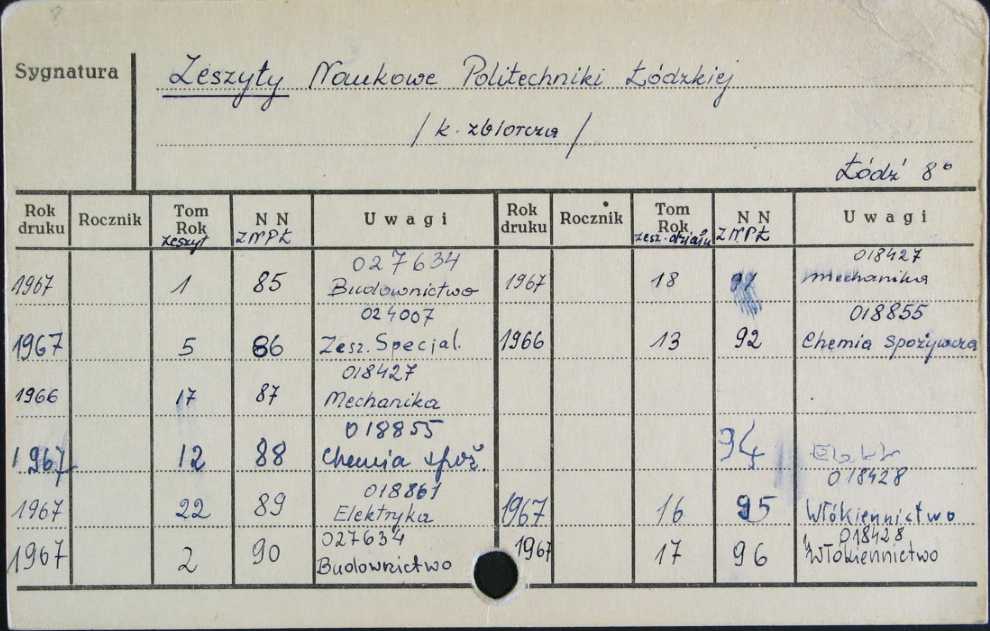 Sygnatura
Zeszyty Naukowe Politechniki Łódzkiej
/k. zbiorcza/
Łódź 8°
Rok druku Rocznik Tom Rok zeszyt N N ZNPŁ Uwagi Rok druku Rocznik Tom Rok zesz. działu N N ZNPŁ Uwagi
027634 018427
1967 1 85 Budownictwo 1967 18 91 Mechanika
024007 018855
1967 5 86 Zesz. Specjal. 1966 13 92 Chemia spożywcza
018427
1966 17 87 Mechanika
018855
1967 12 88 Chemia spoż. 94
018861 018428
1967 22 89 Elektryka 1967 16 95 Włókiennictwo
027634 018428
1967 2 90 Budownictwo 1967 17 96 Włókiennictwo